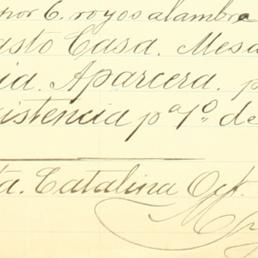 por 6. royos alambre
asto Casa. Mesa
ia. Aparcera. p
istencia pª 1º de
ta. Catalina Oct.